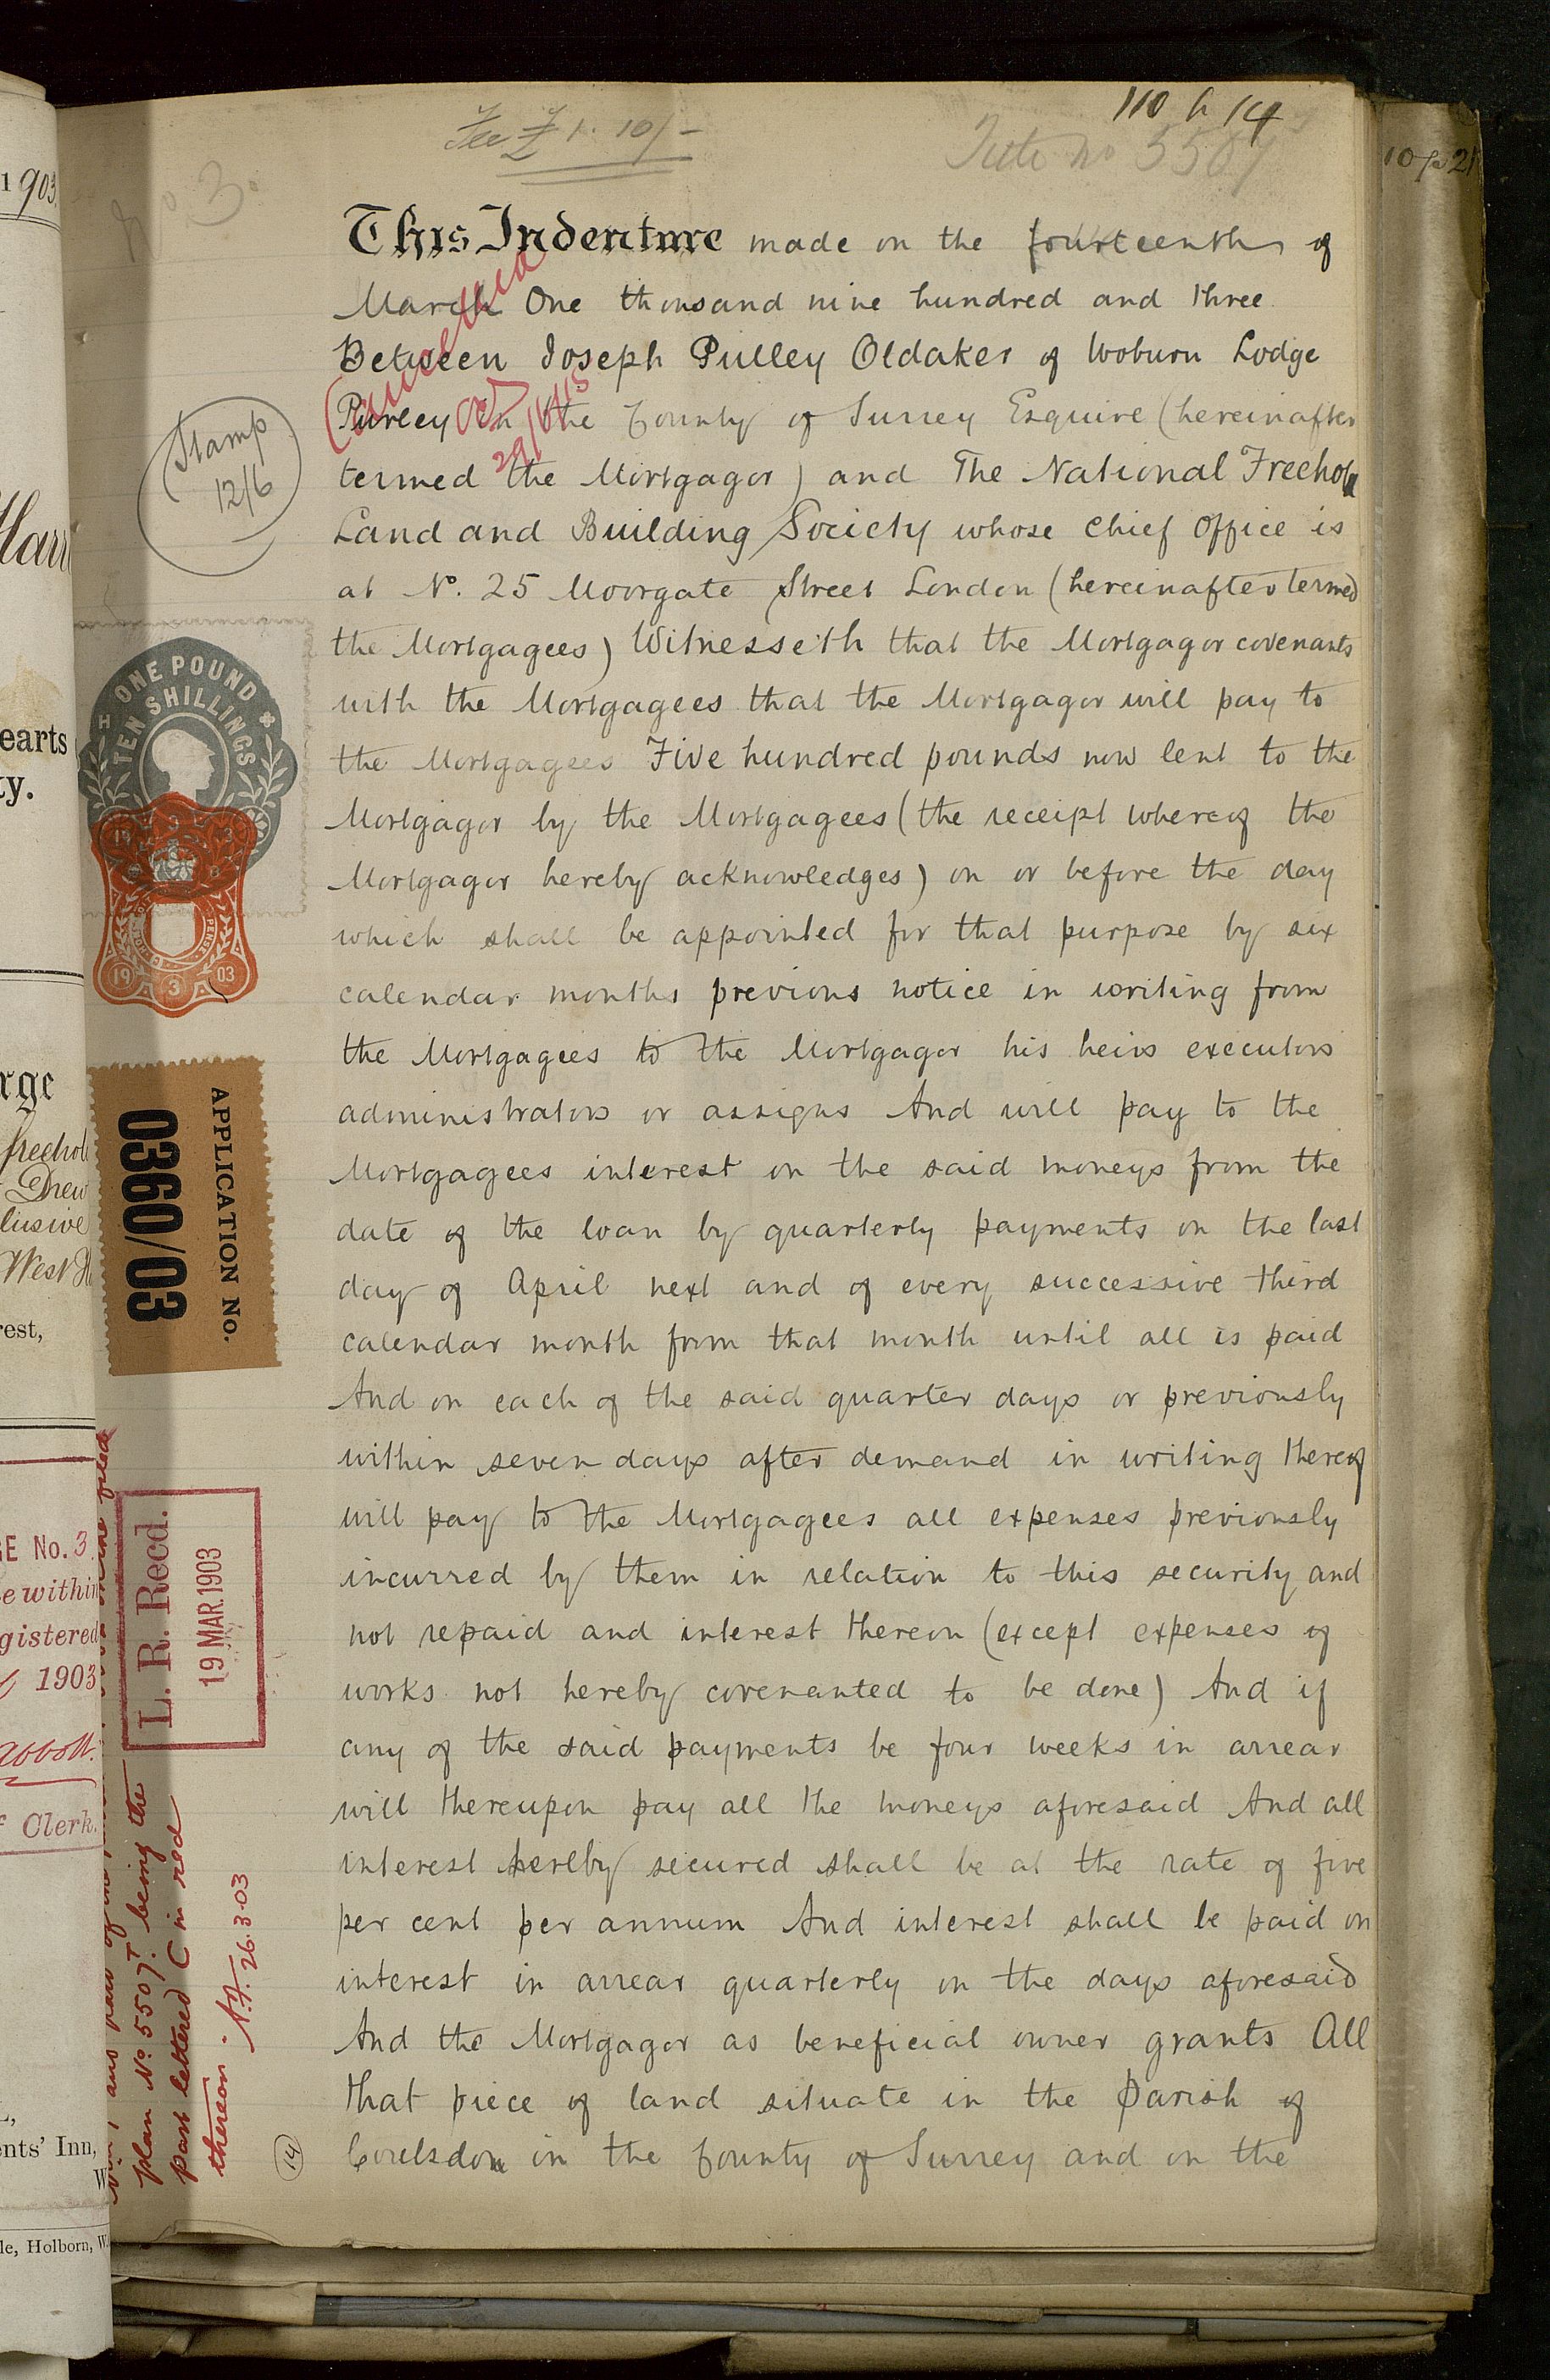 110 h 14
Fee £1. 10/-
Title no 5507
10 p 21
No. 3.
This Indenture made on the fourteenth of
March One thousand nine hundred and three
Between Joseph Pulley Oldaker of Woburn Lodge
Purley in the County of Surrey Esquire (hereinafter
termed the Mortgagor) and The National Freehold
Land and Building Society whose chief office is
at No. 25 Moorgate Street London (hereinafter termed
the Mortgagees) Witnesseth that the Mortgagor covenants
with the Mortgagees that the Mortgagor will pay to
the Mortgagees Five hundred pounds now lent to the
Mortgagor by the Mortgagees (the receipt whereof the
Mortgagor hereby acknowledges) on or before the day
which shall be appointed for that purpose by six
calendar months previous notice in writing from
the Mortgagees to the Mortgagor his heirs executors
administrators or assigns And will pay to the
Mortgagees interest on the said moneys from the
date of the loan by quarterly payments on the last
day of April next and of every successive third
calendar month from that month until all is paid
And on each of the said quarter days or previously
within seven days after demand in writing thereof
will pay to the Mortgagees all expenses previously
incurred by them in relation to this security and
not repaid and interest thereon (except expenses of
works not hereby covenanted to be done) And if
any of the said payments be four weeks in arrear
will thereupon pay all the moneys aforesaid And all
interest hereby secured shall be at the rate of five
per cent per annum And interest shall be paid on
interest in arrear quarterly on the days aforesaid
And the Mortgagor as beneficial owner grants All
that piece of land situate in the Parish of
Coulsdon in the County of Surrey and on the
Cancelled
Stamp
12/6
ONE POUND
TEN SHILLINGS
19 3 03
APPLICATION No.
0360/03
L. R. Recd.
19 MAR. 1903
plan No. 5507T. being the
part lettered C in red
thereon
26.3.03
14
1903
earts
ty.
rge
freehol
Drew
lusive
West H
rest,
GE No. 3.
e within
gistered
1903
abbott.
f Clerk.
ents' Inn,
W
le, Holborn, W.